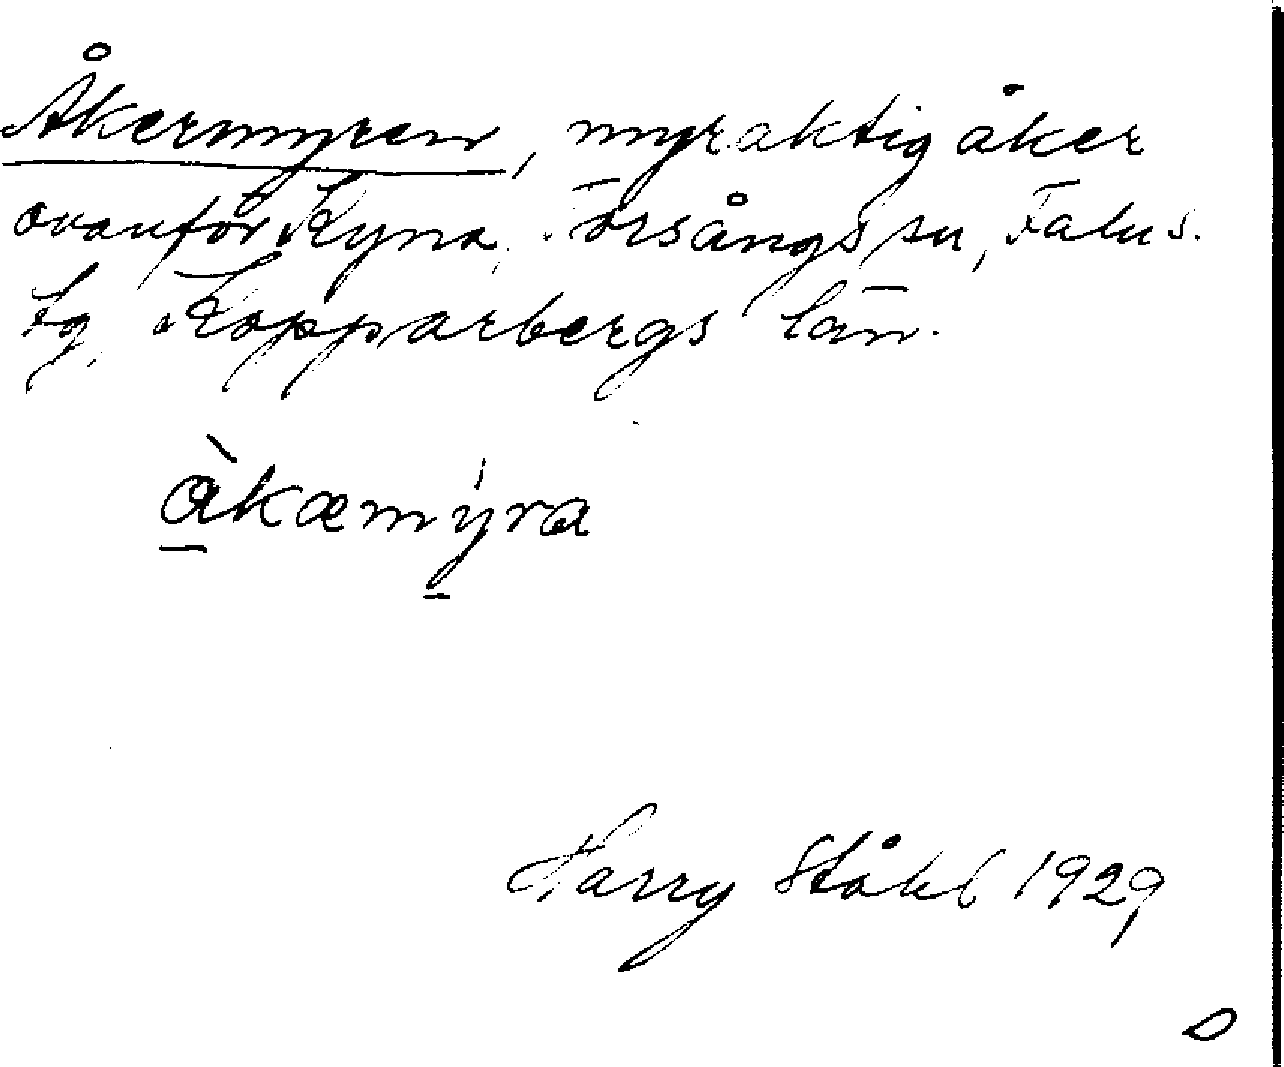 Åkermyren, myraktig åker
ovanför Kyna, Torsångs sn, Falu s.
tg, Kopparbergs län.
åkæmýra
Harry Ståhl 1929